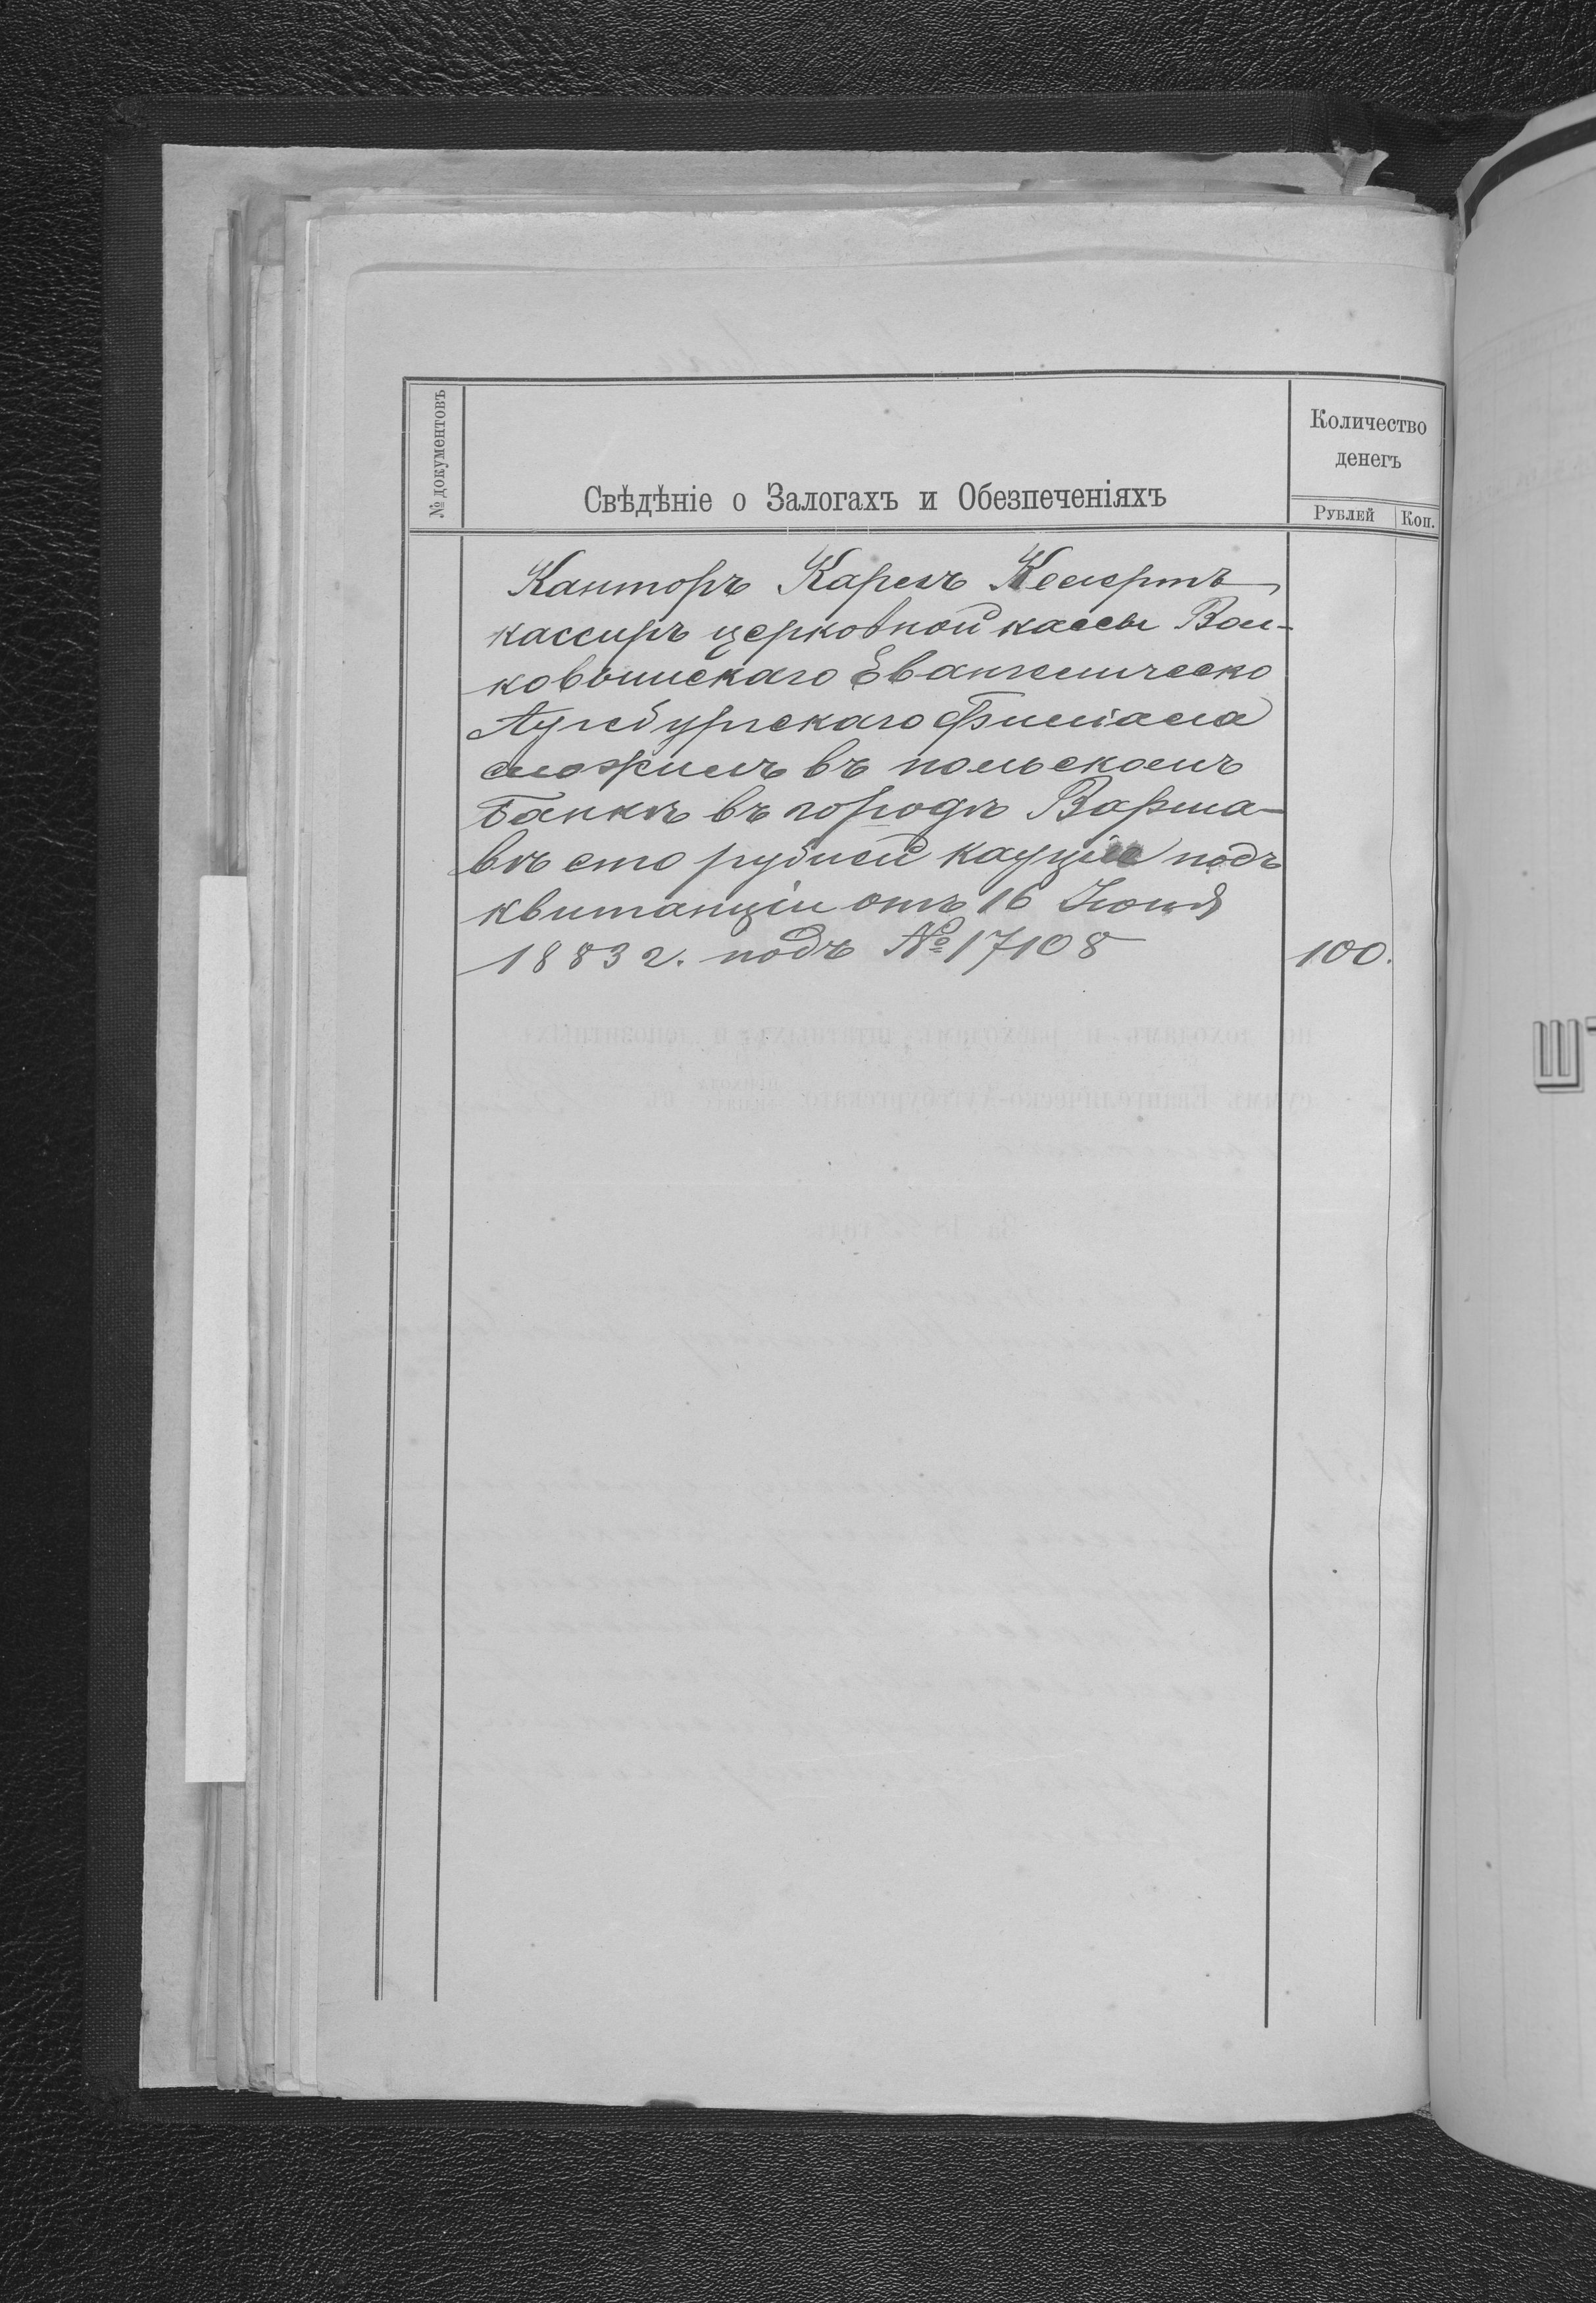 № документовъ
Свѣдѣніе о Залогахъ и Обезпеченіяхъ
Количество
денегъ
Рублей Коп.
Канторъ Карлъ
кассиръ церковной кассы Вол-
ковышскаго Евангелическо
Аугсбургскаго Филіала
сложилъ въ польскомъ
банкѣ въ городѣ Варша-
вѣ сто рублей кауціи подъ
квитанціи отъ 16 Іюня
1883 г. подъ № 17108
100.